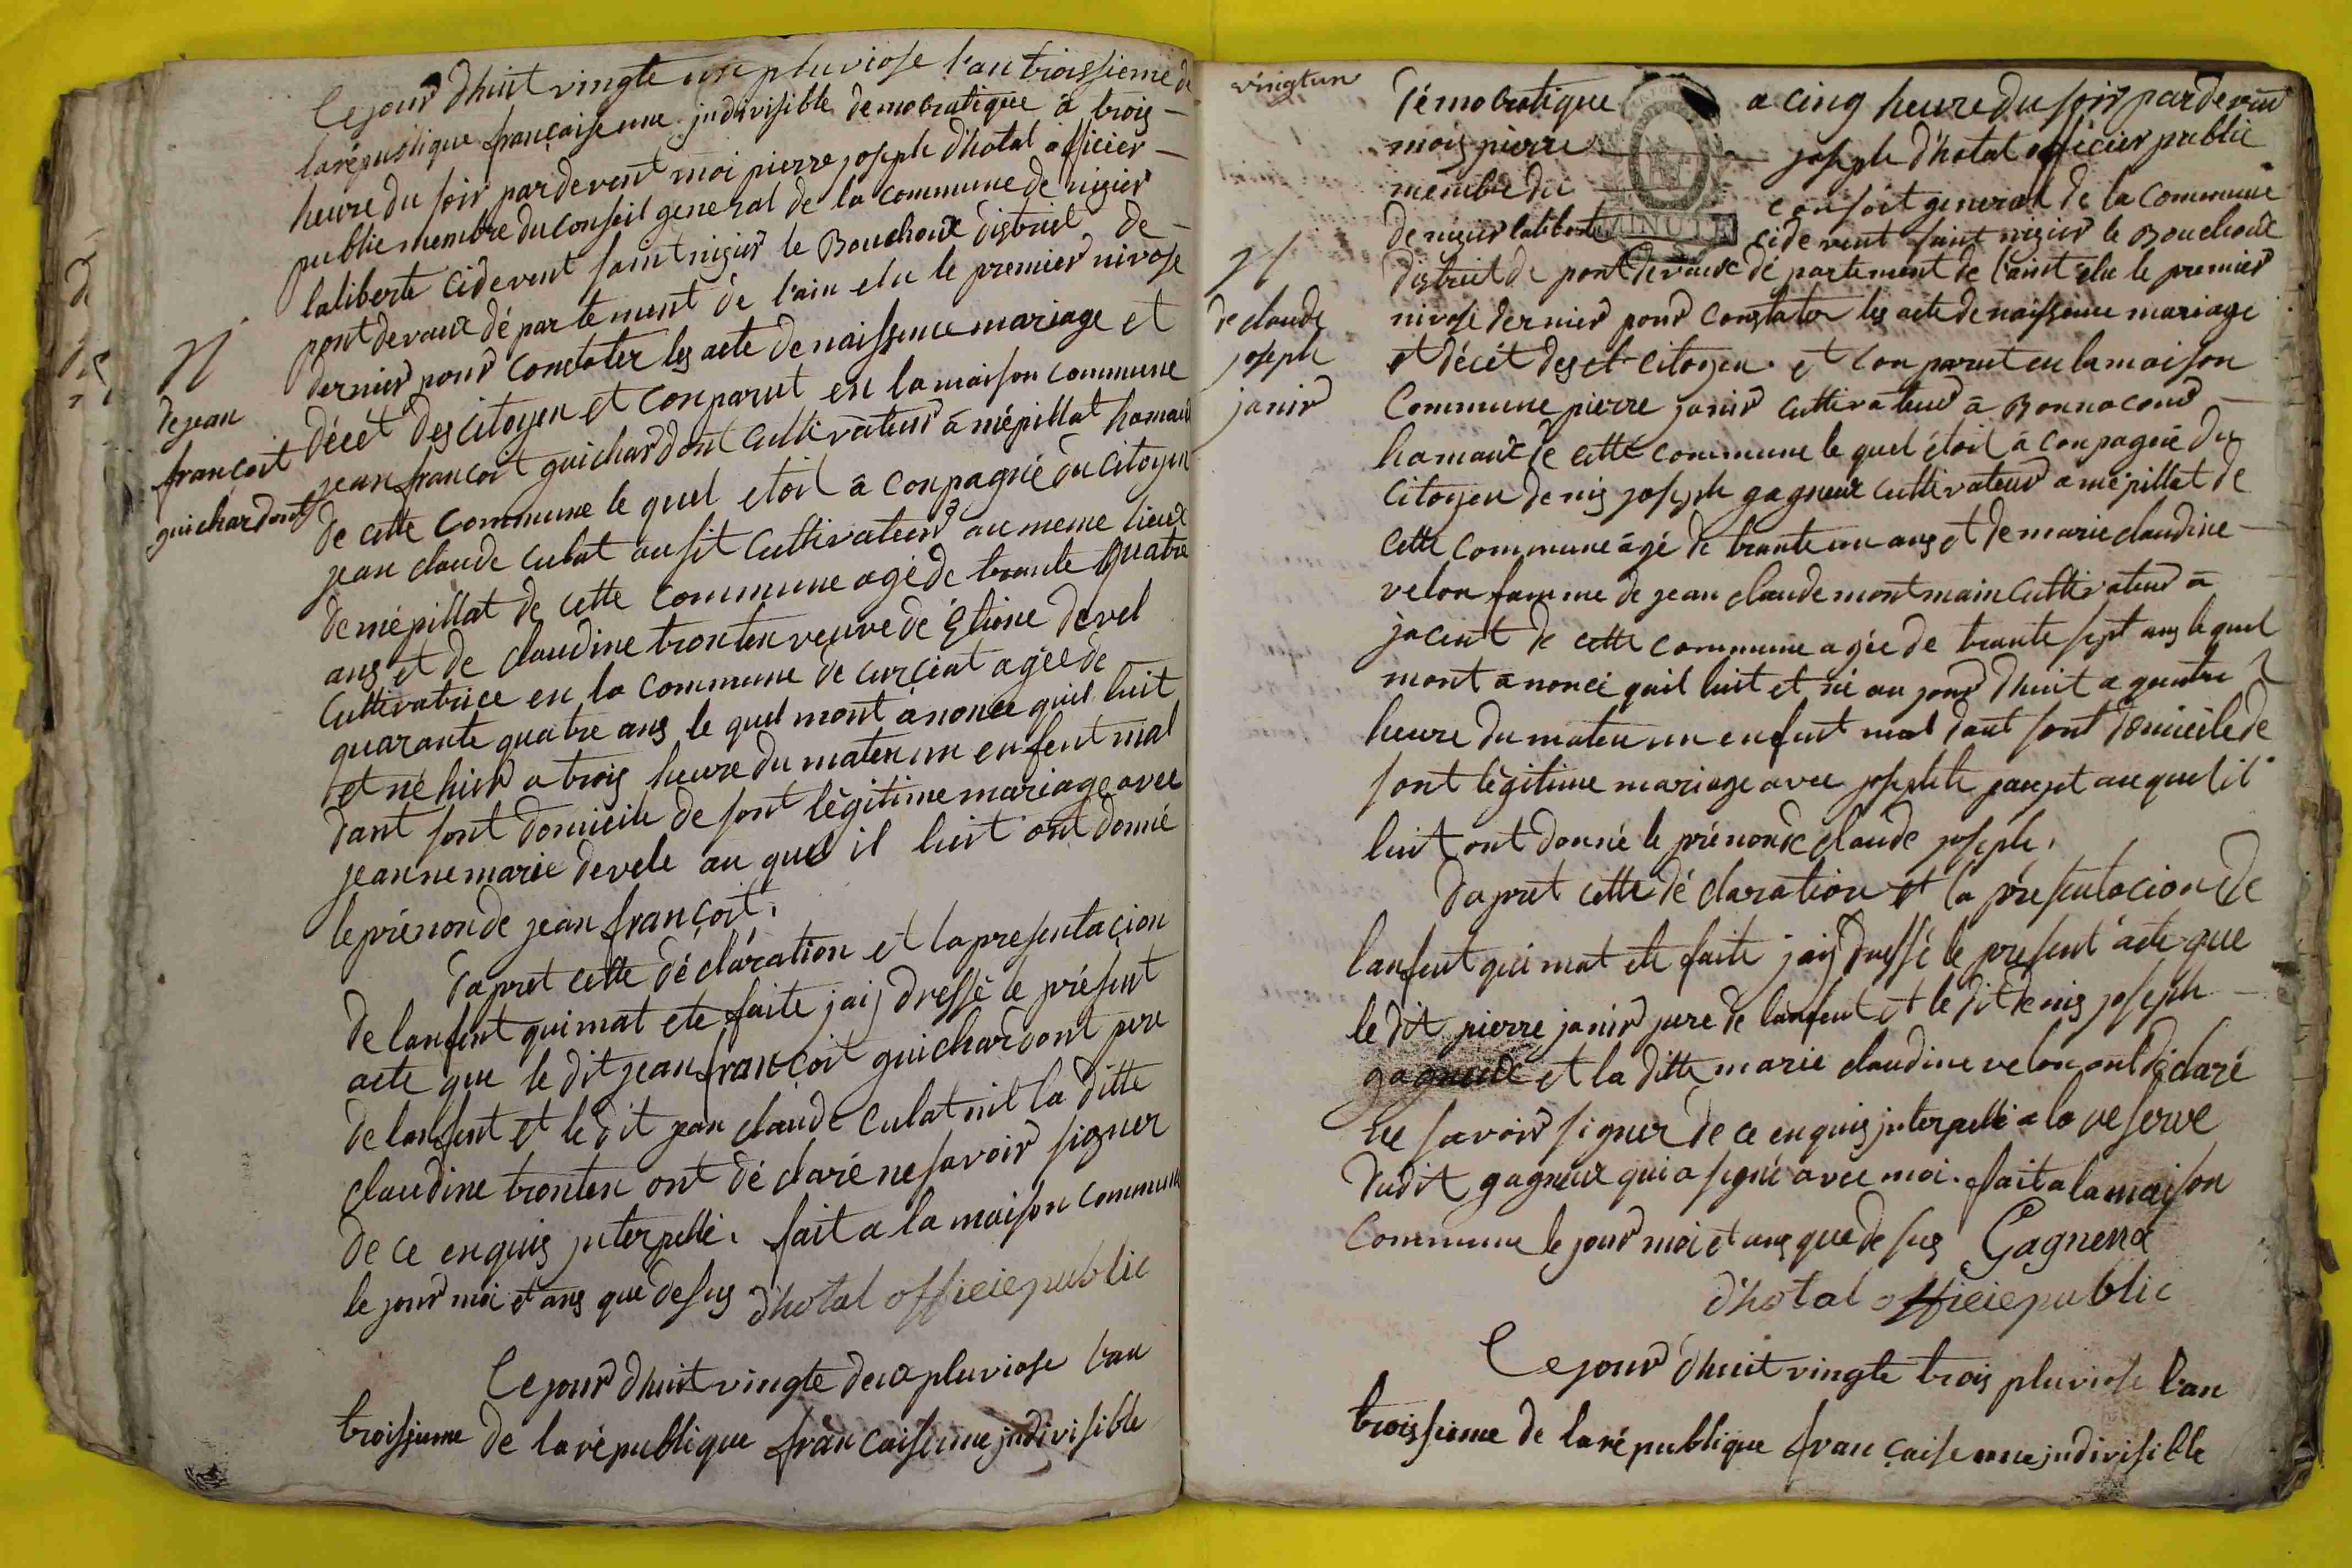 Cejourd dhuit vingte un pluviose l'an troissieme de
la république française une indivisible demobratique à trois
heure du soir par devent moi pierre joseph d'hotal officier
public membre du conseil general de la commune de nizier
laliberte cidevent saint nizier le Bouchoux district de
pont devaux dé partement de l'ain elu le premier nivose
dernier pour constater les acte de naissence mariage et
décét des citoyen et conparut en la maison commune
N
de jean
francoit
guichardont
jean francoit guichardont cultivateur à mépillat hamaud
de cette commune le quel etoit à conpagnié du citoyen
jean claude culat ausit cultivateur au meme lieux
de mépillat de cette commune agé de trante quatre
ans et de claudine tronten veuve de Etiene devel
cultivatrice en la commune de curciat agée de
quarante quatre ans le quel mont anoncé quil luit
et né hier a trois heure du maten un enfent mal
dant sont domicile de sont légitime mariage avec
jeanne marie devele au quel il luit ont donné
le prénon de jean françoit.
dapret cette dé claration et la presentacion
de lanfent qui mat ete faite jaij dressé le présent
acte que le dit jean françoit guichardont pere
de lanfent et le dit jean claude culat nit la ditte
claudine tronten ont dé claré ne savoir signer
de ce enquis jnterpellé. fait a la maison commune
le jour moi et ans que desus d'hotal officiepublic
Cejourd dhuit vingte deux pluviose l'an
troissieme de la république française une jndivisible
vingtun
démobratique a cinq heure du soir par devant
moi pierre joseph d'hotal officier public
membre du conseil general de la commune
de nizier laliberte cidevent saint nizier le Bouchoux
MINUTE
district de pont devaux dé partement de l'aint elu le premier
nivose dernier pour constater les acte de naissence mariage
et décét des et citoyen et conparut en la maison
N
de claude
joseph
janir
Commune pierre janir cultivateur à Bonnacour
hamaux de cette commune le quel étoit à conpagnié du
citoyen denis joseph gagneux cultivateur a mépillat de
cette commune agé de trante un ans et de marie claudine
velon famme de jean claude montmain cultivateur à
jacent de cette commune agée de trante sept ans le quel
mont anoncé quil luit et né au jourd dhuit a quatre
heure du maten un enfent mal dant sont domicile de
sont légitime mariage avec josephte au quel il
luit ont donné le prénon de claude joseph.
dapret cette dé claration et la présentacion de
lanfent qui mat ete faite jaij dressé le present acte que
le dit pierre janir pere de lanfent et le dit denis joseph
gagneux et la ditte marie claudine velon ont déclaré
ne savoir signer de ce enquis jnterpellé a la reserve
dudit gagneux qui a signé avec moi. fait a la maison
Commune le jour moi et ans que de sus Gagneux
d'hotal officiepublic
Cejourd dhuit vingte trois pluviose l'an
troissieme de la république française une jndivisible